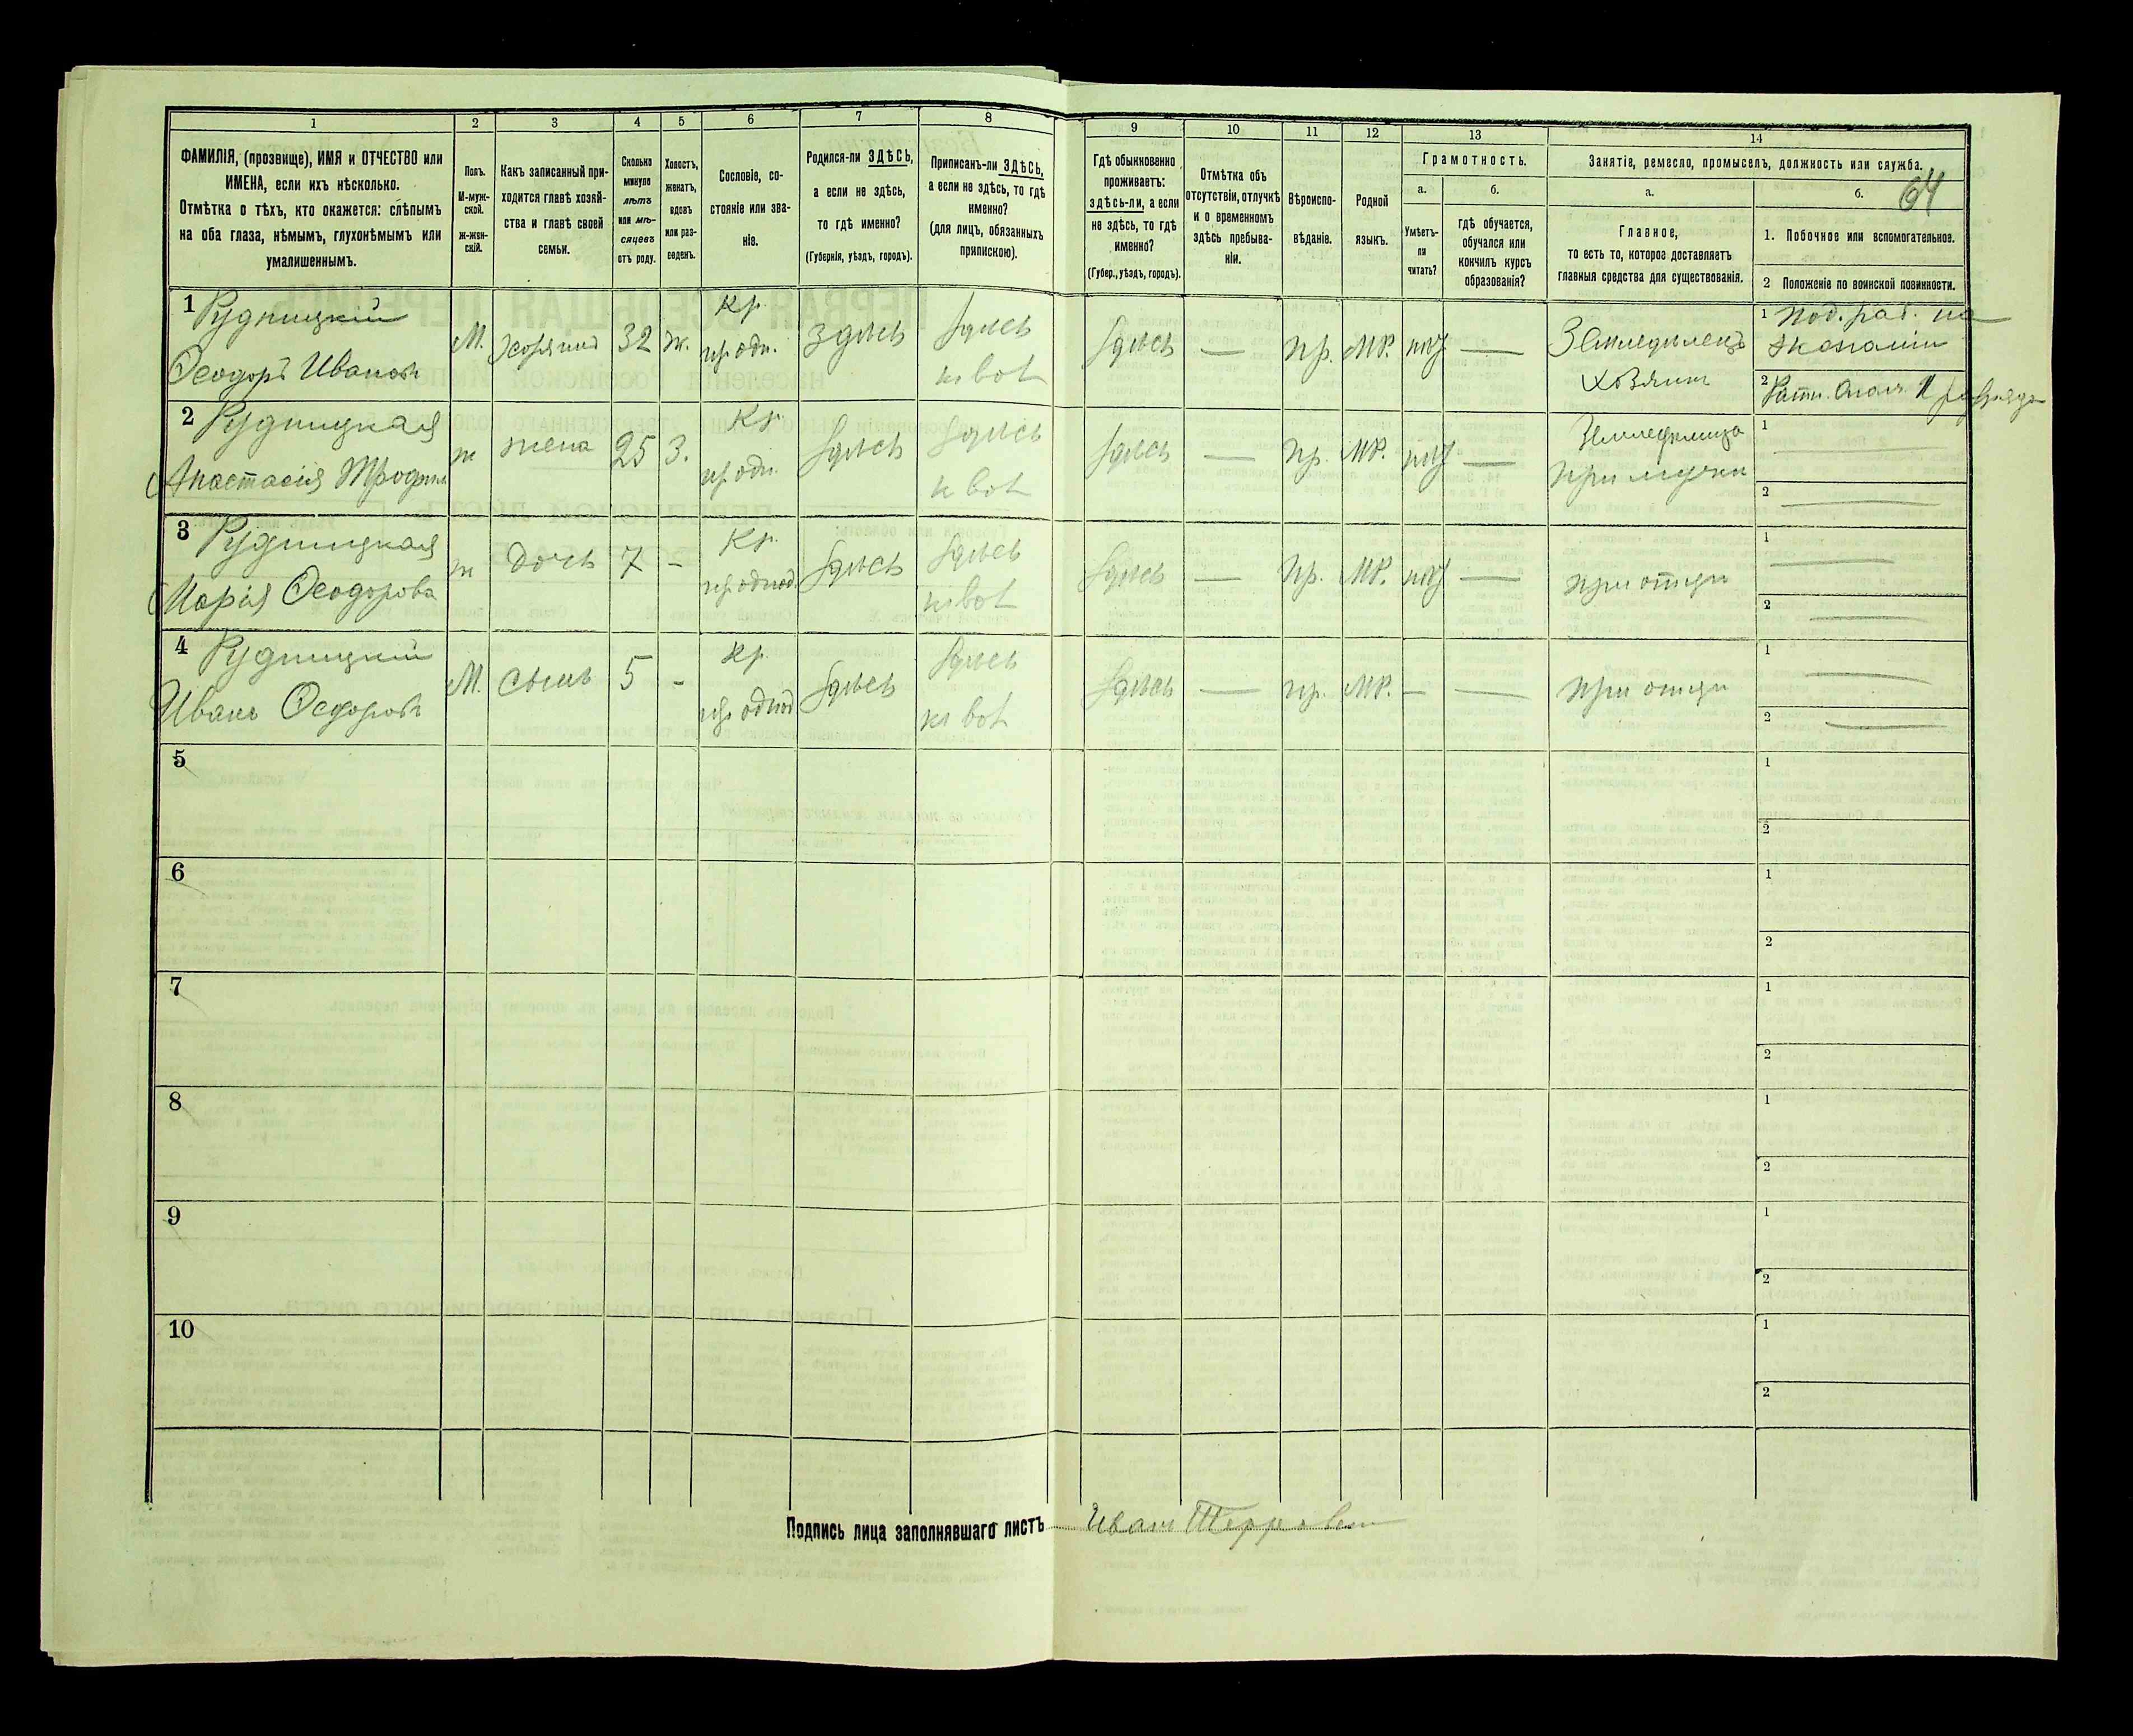 1
2
3
4
5
6
7
8
9
10
11
12
13
14
ФАМИЛІЯ, (прозвище), ИМЯ и ОТЧЕСТВО или
ИМЕНА, если ихъ нѣсколько.
Отмѣтка о тѣхъ, кто окажется: слѣпымъ
на оба глаза, нѣмымъ, глухонѣмымъ или
умалишеннымъ.
Полъ.
М-муж-
ской.
ж-жен-
скій.
Какъ записанный при-
ходится главѣ хозяй-
ства и главѣ своей
семьи.
Сколько
минуло
лѣтъ
или мѣ-
сяцевъ
отъ роду.
Холостъ,
женатъ,
вдовъ
или раз-
веденъ.
Сословіе, со-
стояніе или зва-
ніе.
Родился-ли ЗДѢСЬ,
а если не здѣсь,
то гдѣ именно?
(Губернія, уѣздъ, городъ).
Приписанъ-ли ЗДѢСЬ,
а если не здѣсь, то гдѣ
именно?
(для лицъ, обязанныхъ
припискою).
Гдѣ обыкновенно
проживаетъ:
здѣсь-ли, а если
не здѣсь, то гдѣ
именно?
(Губер., уѣздъ, городъ).
Отмѣтка объ
отсутствіи, отлучкѣ
и о временномъ
здѣсь пребыва-
ніи.
Вѣроиспо-
вѣданіе.
Родной
языкъ.
Грамотность.
а.
Умѣетъ-
ли
читать?
б.
гдѣ обучается,
обучался или
кончилъ курсъ
образованія?
Занятіе, ремесло, промыселъ, должность или служба.
64
а.
Главное,
то есть то, которое доставляетъ
главныя средства для существованія.
б.
1. Побочное или вспомогательное.
2 Положеніе по воинской повинности.
1 Рудницкій
Ѳеодоръ Иванов
М. хозяинъ 32 ж. кр. здѣсь здѣсь
здѣсь — пр. мр. — Земледѣлецъ
хозяин
1 под. раб. на
экономіи
2
2 Рудницкая
Анастасія
ж жена 25 з. кр. здѣсь здѣсь
здѣсь — пр. мр. —
при мужи
1
2
3 Рудницкая
Марія Ѳеодорова
ж дочь 7 - кр. здѣсь здѣсь
здѣсь — пр. мр. — при отци
1
2
4 Рудницкій
Иванъ Ѳеодоров
М. сынъ 5 - кр. здѣсь здѣсь
здѣсь — пр. мр. — — при отци
1
2
5
1
2
6
1
2
7
1
2
8
1
2
9
1
2
10
1
2
Подпись лица заполнявшаго листъ Иван